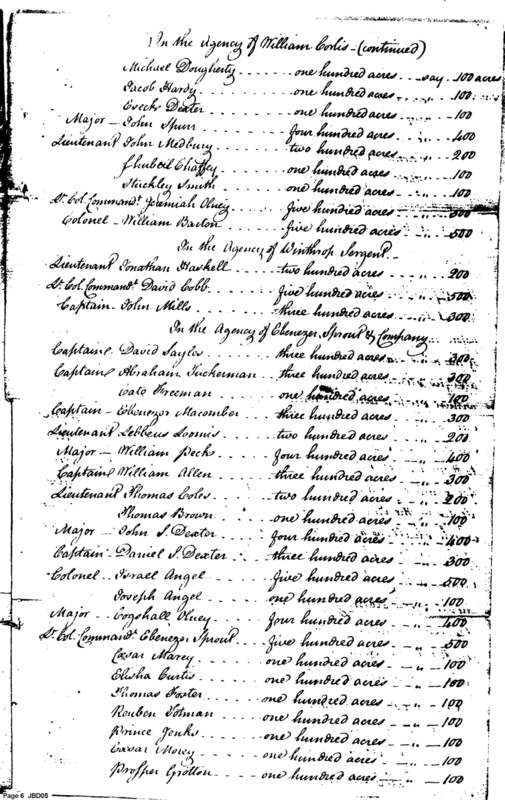 In the Agency of William Corlis - (continued)
Michael Dougherty one hundred acres say 100 acres
Jacob Hardy one hundred acres " 100
Eseck Dexter one hundred acres " 100
Major - John Spurr four hundred acres " 400
Lieutenant John Medbury two hundred acres " 200
Chaffey one hundred acres " 100
Stukley Smith one hundred acres " 100
Lt. Col. Commandt. Jeremiah Olney five hundred acres " 500
Colonel - William Barton five hundred acres " 500
In the Agency of Winthrop Sergent
Lieutenant Jonathan Haskell two hundred acres " 200
Lt. Col. Commandt. David Cobb five hundred acres " 500
Captain John Mills three hundred acres " 300
In the Agency of Ebenezer Sprout & Company
Captain David Sayles three hundred acres " 300
Captain Abraham Tuckerman three hundred acres " 300
Cato Freeman one hundred acres " 100
Captain - Ebenezer Macomber three hundred acres " 300
Lieutenant Lebbeus Loomis two hundred acres " 200
Major - William Peck four hundred acres " 400
Captain William Allen three hundred acres " 300
Lieutenant Thomas Coles two hundred acres " 200
Thomas Brown one hundred acres " 100
Major - John S. Dexter four hundred acres " 400
Captain - Daniel S. Dexter three hundred acres " 300
Colonel Israel Angel five hundred acres " 500
Joseph Angel one hundred acres " 100
Major Cogshall Olney four hundred acres " 400
Lt. Col. Commandt. Ebenezer Sprout five hundred acres " 500
Cæsar Marey one hundred acres " 100
Elisha Curtis one hundred acres " 100
Thomas Foster one hundred acres " 100
Reuben Totman one hundred acres " 100
Prince Jenks one hundred acres " 100
Cæsar Morey one hundred acres " 100
Prosper Grotton one hundred acres " 100
Page 6 JBD05